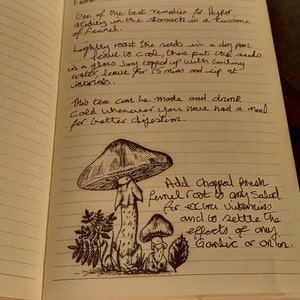 One of the best remedies for hyper
acidity in the stomach is a tissome
of Fennel.
Lightly roast the seeds in a dry pan
leave to cool, then put the seeds
in a glass Jug topped up with boiling
water, leave for 15 mins and sip at
intervals.
This tea can be made and drank
cold whenever you have had a meal
for better digestion.
Add chopped fresh
fennel root to any Salad
for extra vitamins
and to settle the
effects of any
Garlic or onion.